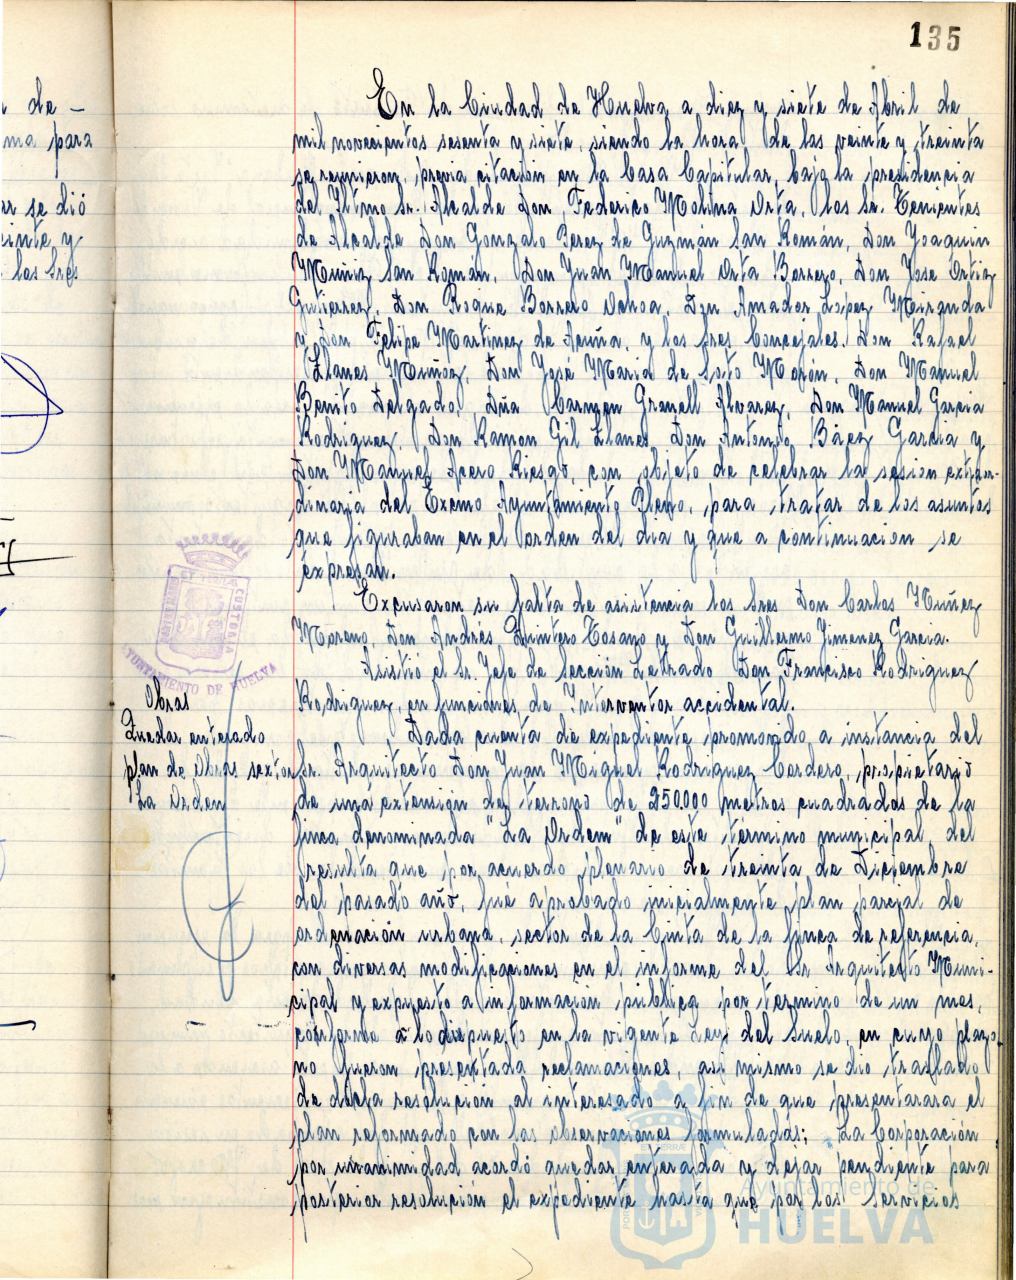 135
de -
ma para
se dió
y
los Sres
En la Ciudad de Huelva a diez y siete de Abril de
mil novecientos sesenta y siete, siendo la hora de las veinte y treinta
se reunieron, previa citación en la Casa Capitular, bajo la presidencia
del Iltmo Sr. Alcalde Don Federico Molina Orta, los Sr. Tenientes
de Alcalde Don Gonzalo Perez de Guzmán San Román, Don Joaquin
Muñiz San Román, Don Juan Manuel Orta Borrero, Don Jose Ortiz
Gutierrez, Don Roque Borrero Ochoa, Don Amador Lopez Miranda
y Don Felipe Martinez de Acuña, y los Sres Concejales. Don Rafael
Llanes Muñoz, Don José Maria de Soto Morón, Don Manuel
Benito Delgado, Dña Carmen Granell Alvarez, Don Manuel Garcia
Rodriguez, Don Ramon Gil Llanes, Don Antonio Báez Garcia y
Don Manuel Acero Riesgo, con objeto de celebrar la sesion extraor-
dinaria del Excmo Ayuntamiento Pleno, para tratar de los asuntos
que figuraban en el orden del dia y que a continuacion se
expresan.
Excusaron su falta de asistencia los Sres Don Carlos Núñez
Moreno, Don Andrés Quintero Tosano y Don Guillermo Jimenez Garcia.
Asistió el Sr. Jefe de Sección Letrado Don Francisco Rodriguez
Rodriguez, en funciones de Interventor accidental.
AYUNTAMIENTO DE HUELVA
CUSTODIA
Obras
Quedar enterado
plan de Obras sector
La Orden
Dada cuenta de expediente promovido a instancia del
Sr. Arquitecto Don Juan Miguel Rodriguez Cordero, propietario
de una extensión de terreno de 250.000 metros cuadrados de la
finca denominada "La Orden" de este término municipal, del
resulta que por acuerdo plenario de treinta de Diciembre
del pasado año, fué aprobado inicialmente plan parcial de
ordenación urbana, sector de la Cinta de la finca de referencia,
con diversas modificaciones en el informe del Sr. Arquitecto Muni-
cipal y expuesto a información pública por termino de un mes,
conforme a lo dispuesto en la vigente Ley del Suelo, en cuyo plazo
no fueron presentada reclamaciones, asi mismo se dió traslado
de dicha resolución al interesado a fin de que presentara el
plan reformado con las observaciones formuladas; La Corporación
por unanimidad acordó quedar enterada y dejar pendiente para
posterior resolución el expediente hasta que por los Servicios
Ayuntamiento de
HUELVA